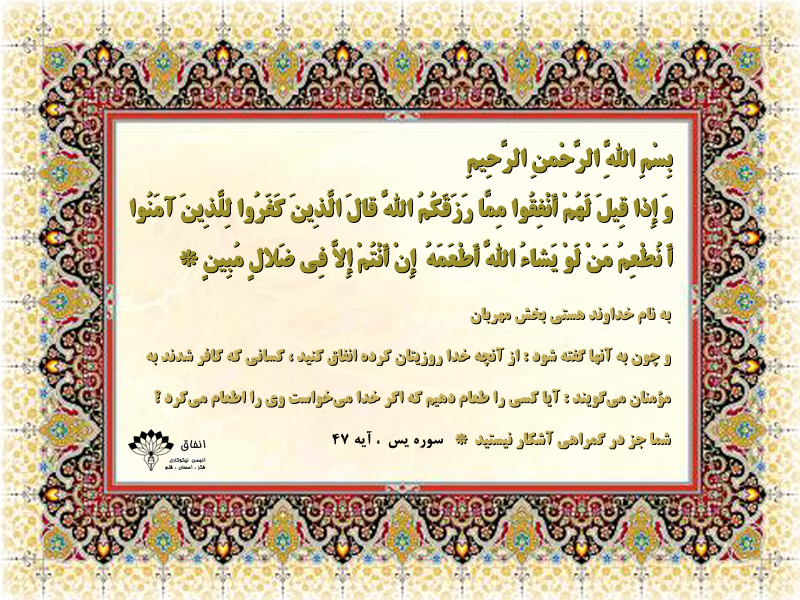 بِسْمِ اللهِ الرَّحْمنِ الرَّحِيمِ
وَ إِذا قِيلَ لَهُمْ أَنْفِقُوا مِمَّا رَزَقَكُمُ اللهُ قالَ الَّذِينَ كَفَرُوا لِلَّذِينَ آمَنُوا
أَ نُطْعِمُ مَنْ لَوْ يَشاءُ اللهُ أَطْعَمَهُ إِنْ أَنْتُمْ إِلاَّ فِی ضَلالٍ مُبِينٍ *
به نام خداوند هستی بخش مهربان
و چون به آنها گفته شود : از آنچه خدا روزیتان کرده انفاق کنید ، کسانی که کافر شدند به
مؤمنان می‌گویند : آیا کسی را طعام دهیم که اگر خدا می‌خواست وی را اطعام می‌کرد ؟
شما جز در گمراهی آشکار نیستید * سوره یس ، آیه ۴۷
انفاق
انجمن نیکوکاری
فکر ، احسان ، قلم